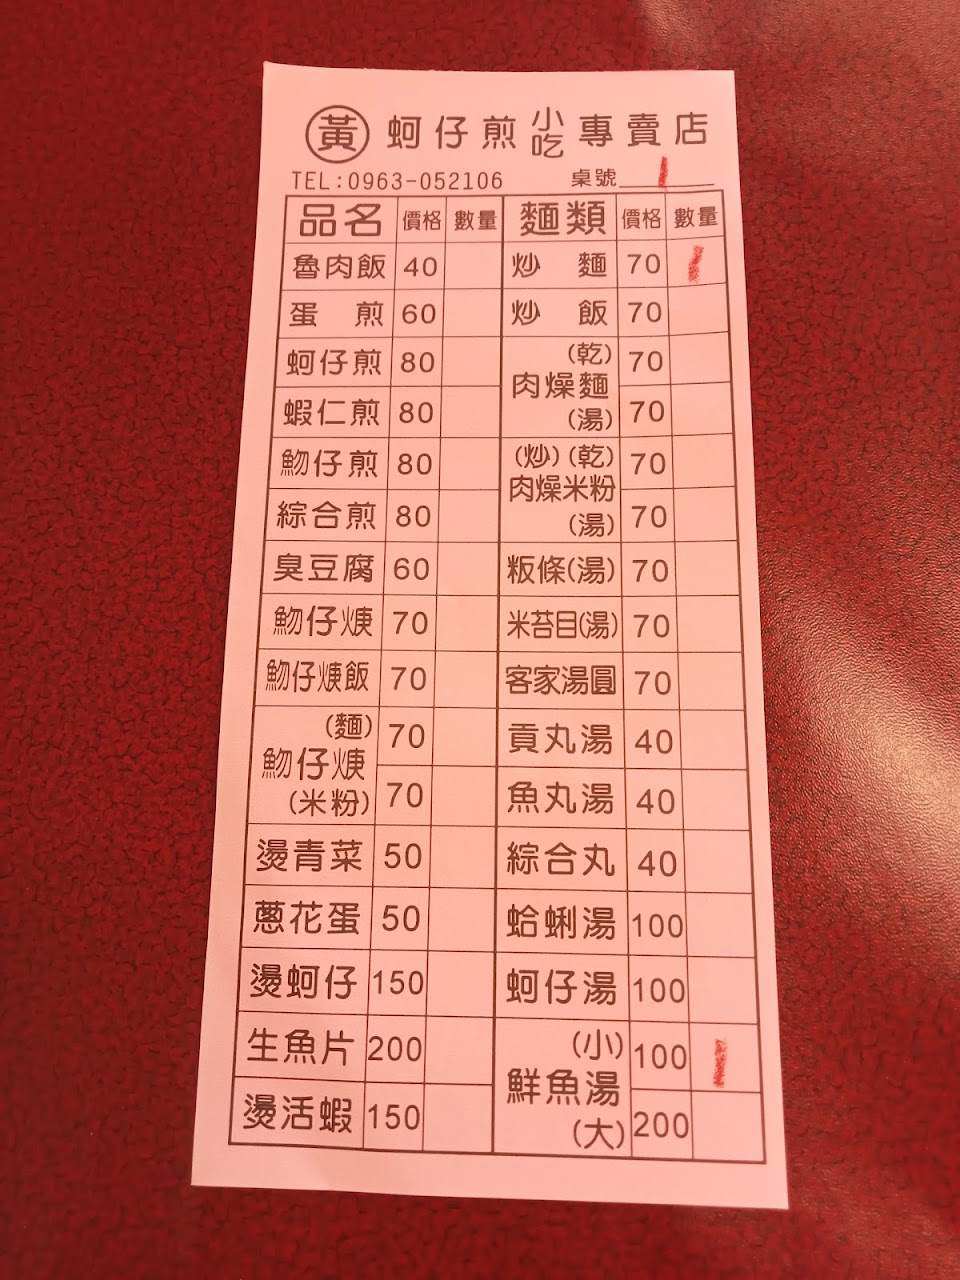 黃 蚵仔煎 小吃 專賣店
TEL:0963-052106 桌號 1
品名 價格 數量 麵類 價格 數量
魯肉飯 40 炒麵 70 1
蛋煎 60 炒飯 70
蚵仔煎 80 (乾) 70
肉燥麵
蝦仁煎 80 (湯) 70
魩仔煎 80 (炒)(乾) 70
肉燥米粉
綜合煎 80 (湯) 70
臭豆腐 60 粄條(湯) 70
魩仔焿 70 米苔目(湯) 70
魩仔焿飯 70 客家湯圓 70
(麵) 70 貢丸湯 40
魩仔焿
(米粉) 70 魚丸湯 40
燙青菜 50 綜合丸 40
蔥花蛋 50 蛤蜊湯 100
燙蚵仔 150 蚵仔湯 100
生魚片 200 (小) 100 1
鮮魚湯
燙活蝦 150 (大) 200